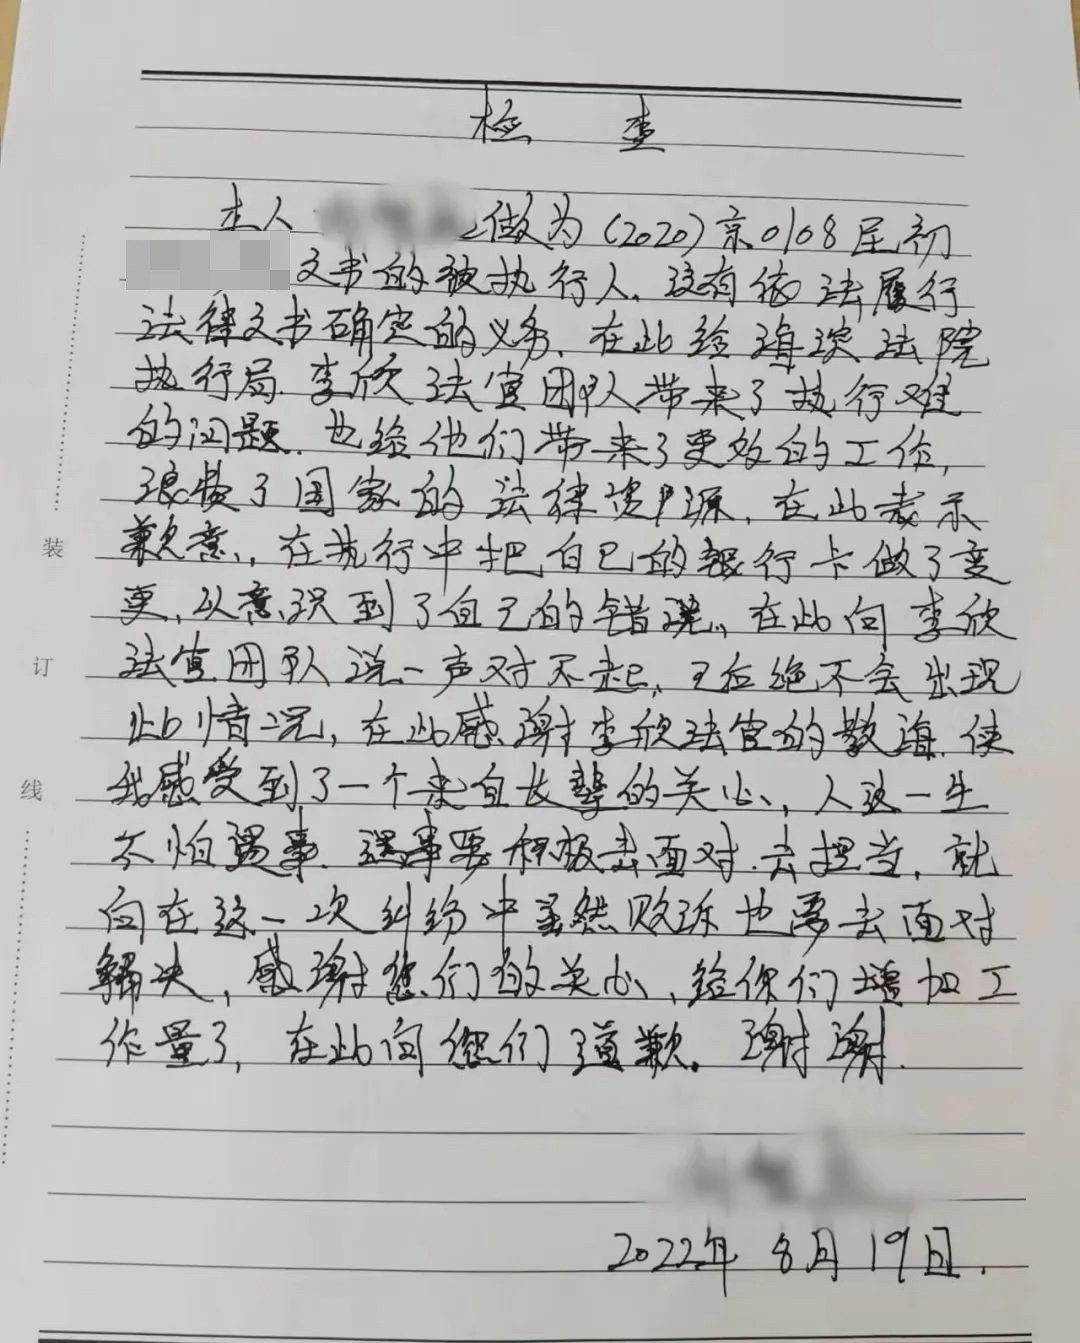 检 查
本人 做为(2020)京0108民初
文书的被执行人,没有依法履行
法律文书确定的义务,在此给海淀法院
执行局,李欣法官团队带来了执行难
的问题,也给他们带来了更多的工作,
浪费了国家的法律资源,在此表示
歉意,在执行中把自己的银行卡做了变
更,以意识到了自己的错误,在此向李欣
法官团队说一声对不起,已后绝不会出现
此情况,在此感谢李欣法官的教海,使
我感受到了一个来自长辈的关心,人这一生
不怕遇事,遇事要积极去面对,去担当,就
向在这一次纠纷中虽然败诉也要去面对
解决,感谢您们的关心,给你们增加工
作量了,在此向您们道歉。谢谢.
2022年 8月19日.
装
订
线